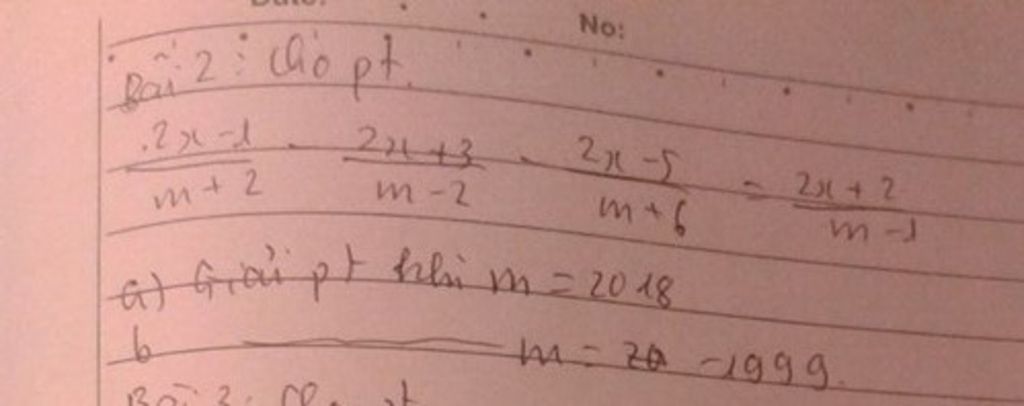 No:
Bài 2: Cho pt.
(2x-1)/(m+2) - (2x+3)/(m-2) - (2x-5)/(m+6) = (2x+2)/(m-1)
a) Giải pt khi m = 2018
b ——— m = -1999.
Bài 3: